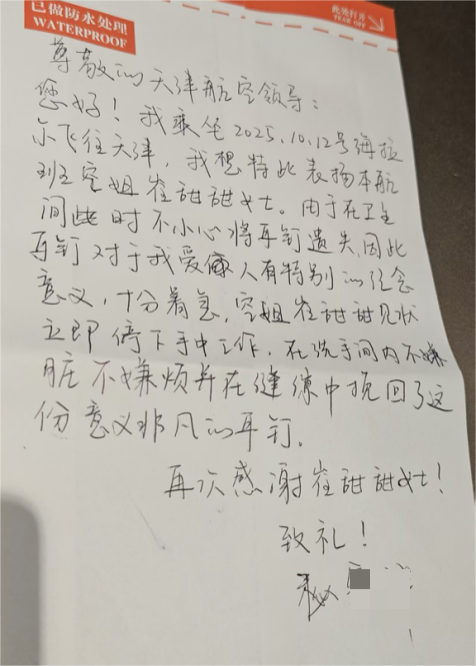 已做防水处理
WATERPROOF
此处打开
TEAR OFF
尊敬的天津航空领导：
您好！我乘坐2025.10.12号海拉
尔飞往天津，我想特此表扬本航
班空姐崔甜甜女士。由于在卫生
间此时不小心将耳钉遗失，因此
耳钉对于我爱人有特别的纪念
意义，十分着急，空姐崔甜甜见状
立即停下手中工作，在洗手间内不嫌
脏不嫌烦并在缝练中挽回了这
份意义非凡的耳钉。
再次感谢崔甜甜女士！
致礼！